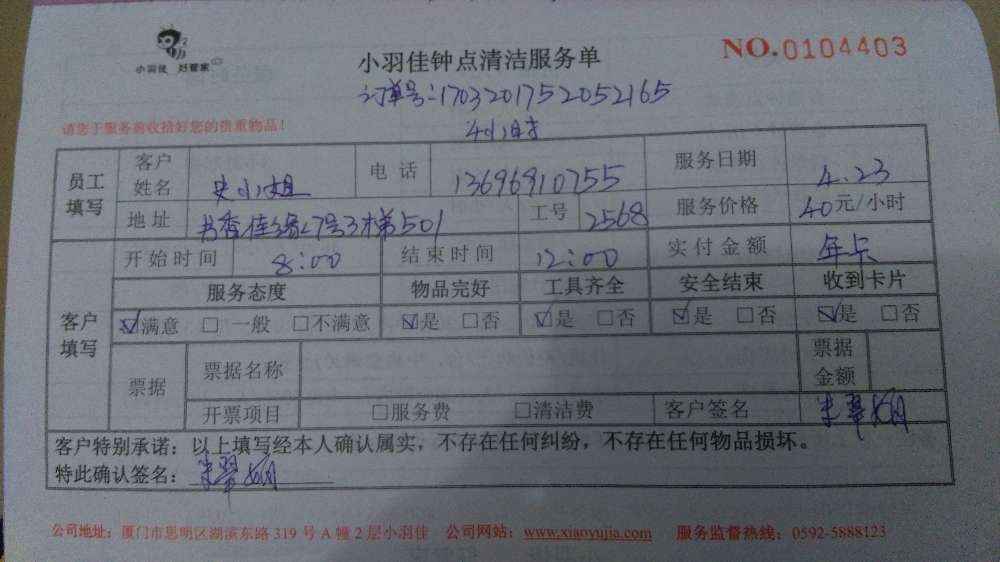 小羽佳 好管家
小羽佳钟点清洁服务单
NO.0104403
订单号:1703201752052165
请您于服务前收拾好您的贵重物品！
4小时
员工填写
客户姓名 史小姐 电话 13696910755 服务日期 4.23
地址 书香佳缘27号3梯501 工号 2568 服务价格 40元/小时
客户填写
开始时间 8:00 结束时间 12:00 实付金额 年卡
服务态度 物品完好 工具齐全 安全结束 收到卡片
☑满意 □一般 □不满意 ☑是 □否 ☑是 □否 ☑是 □否 ☑是 □否
票据 票据名称 票据金额
开票项目 □服务费 □清洁费 客户签名
客户特别承诺：以上填写经本人确认属实，不存在任何纠纷，不存在任何物品损坏。
特此确认签名：
公司地址：厦门市思明区湖滨东路319号A幢2层小羽佳 公司网站：www.xiaoyujia.com 服务监督热线：0592-5888123